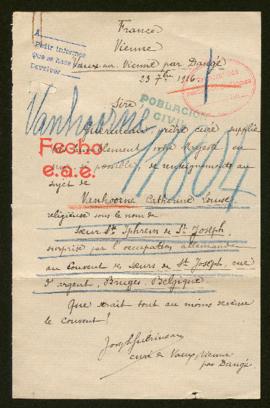 France
Vienne
Vaux sur Vienne par Dangé
23 7bre 1916
A
Pedir informes
que se hace
Devolver
Sire
POBLACION
CIVIL
Vanhoorne
11.804
Fecho
e.a.e.
prêtre curé supplie
humblement votre Majesté
de renseignements au
sujet de
Vanhoorne Catherine Louise
religieuse sous le nom de
Sœur Ste Ephrem de St Joseph,
surprise par l'occupation allemande
au Couvent des Sœurs de St Joseph, rue
d'argent, Bruges, Belgique.
Que serait tout au moins devenu
le couvent!
curé de Vaux s/Vienne
par Dangé